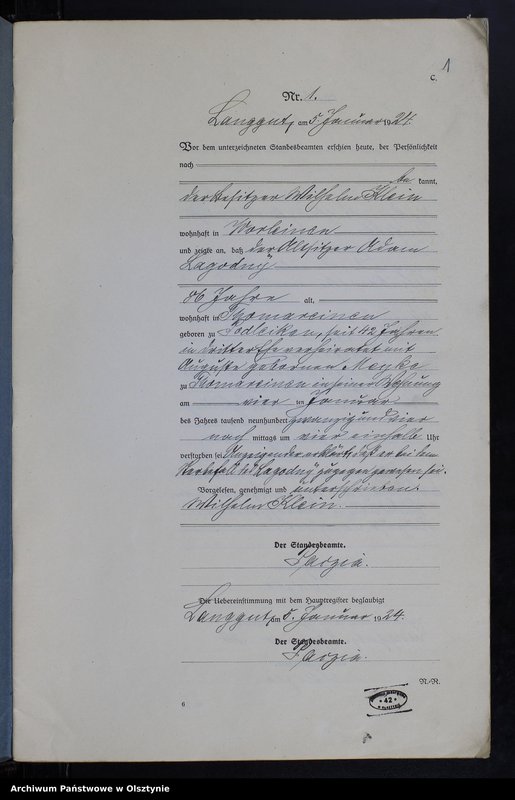 1
C.
Nr. 1.
Langgut, am 5. Januar 1924.
Vor dem unterzeichneten Standesbeamten erschien heute, der Persönlichkeit
nach
be kannt,
der Besitzer Wilhelm Klein
wohnhaft in Worleinen
und zeigte an, daß der Altsitzer Adam
Lagodny
86 Jahre alt,
wohnhaft in Thomareinen
geboren zu seit 42 Jahren
in dritter Ehe verheiratet mit
Auguste gebornen
zu Thomareinen in seiner Wohnung
am vier ten Januar
des Jahres tausend neunhundert zwanzig und vier
nach mittags um vier einhalb Uhr
verstorben sei. Anzeigender erklärt, daß er bei dem
Sterbefall des Lagodny zugegen gewesen sei.
Vorgelesen, genehmigt und unterschrieben
Wilhelm Klein.
Der Standesbeamte.
Die Uebereinstimmung mit dem Hauptregister beglaubigt
Langgut, am 5. Januar 1924.
Der Standesbeamte.
N.-R.
6
* 42 *
Archiwum Państwowe w Olsztynie